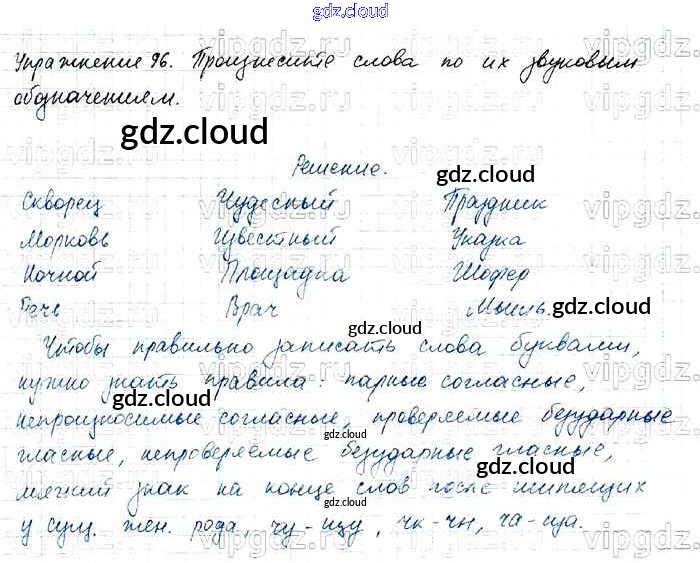 gdz.cloud
Упражнение 96. Произнесите слова по их звуковым
обозначениям.
gdz.cloud
Решение.
gdz.cloud
Скворец Чудесный Праздник
Морковь Известный Указка
Ночной Площадка Шофер
Речь Врач Мысль. gdz.cloud
gdz.cloud
Чтобы правильно записать слова буквами,
нужно знать правила: парные согласные,
gdz.cloud
непроизносимые согласные, проверяемые безударные
gdz.cloud
гласные, непроверяемые безударные гласные,
gdz.cloud
мягкий знак на конце слов после шипящих
gdz.cloud
у сущ. жен. рода, чу-щу, чк-чн, ча-ща.
gdz.cloud
vipgdz.ru